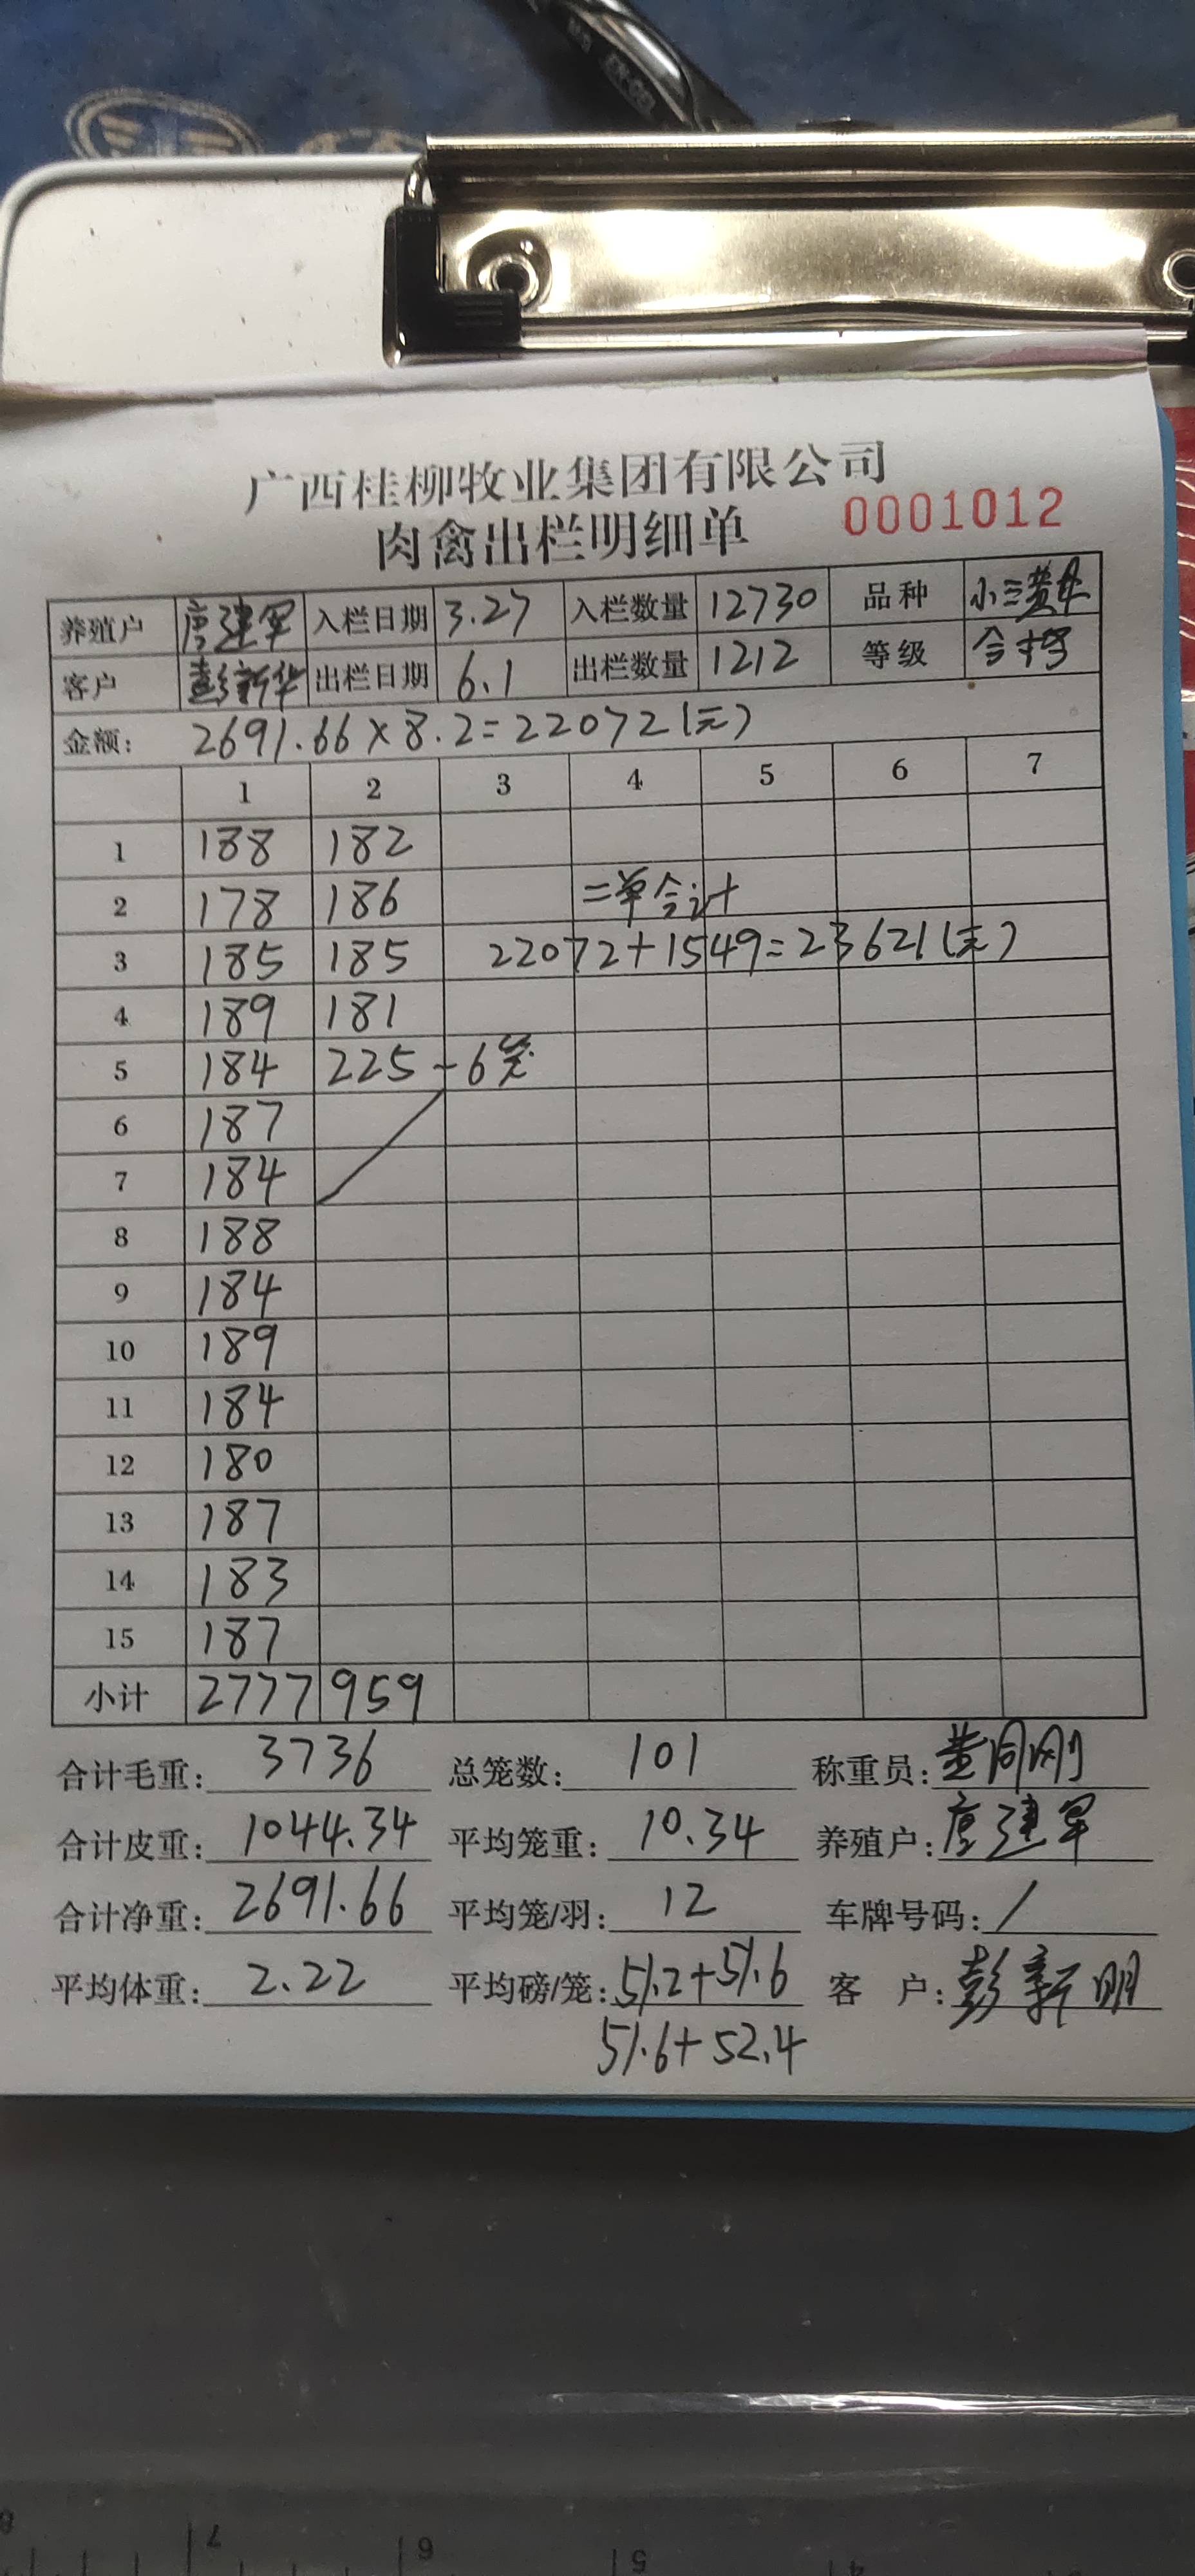 广西桂柳牧业集团有限公司
肉禽出栏明细单 0001012
养殖户 唐建军 入栏日期 3.27 入栏数量 12730 品种 小三黄
客户 彭新华 出栏日期 6.1 出栏数量 1212 等级 合格
金额: 2691.66×8.2=22072(元)
1 2 3 4 5 6 7
1 188 182
2 178 186 二单合计
3 185 185 22072+1549=23621(元)
4 189 181
5 184 225-6笼
6 187
7 184
8 188
9 184
10 189
11 184
12 180
13 187
14 183
15 187
小计 2777 959
合计毛重: 3736 总笼数: 101 称重员: 黄刚
合计皮重: 1044.34 平均笼重: 10.34 养殖户: 唐建军
合计净重: 2691.66 平均笼/羽: 12 车牌号码: /
平均体重: 2.22 平均磅/笼: 51.2+51.6 客 户: 彭新明
51.6+52.4
7 6 5